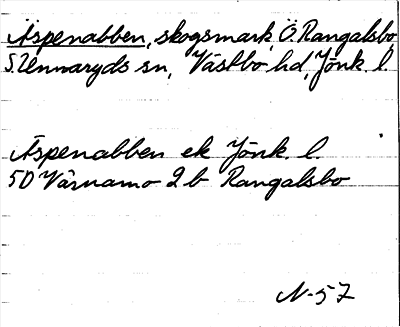 Äspenabben, skogsmark, Ö. Rangalsbo,
S. Unnaryds sn, Västbo hd, Jönk. l.
Äspenabben ek Jönk. l.
5D Värnamo 2b Rangalsbo
N-57